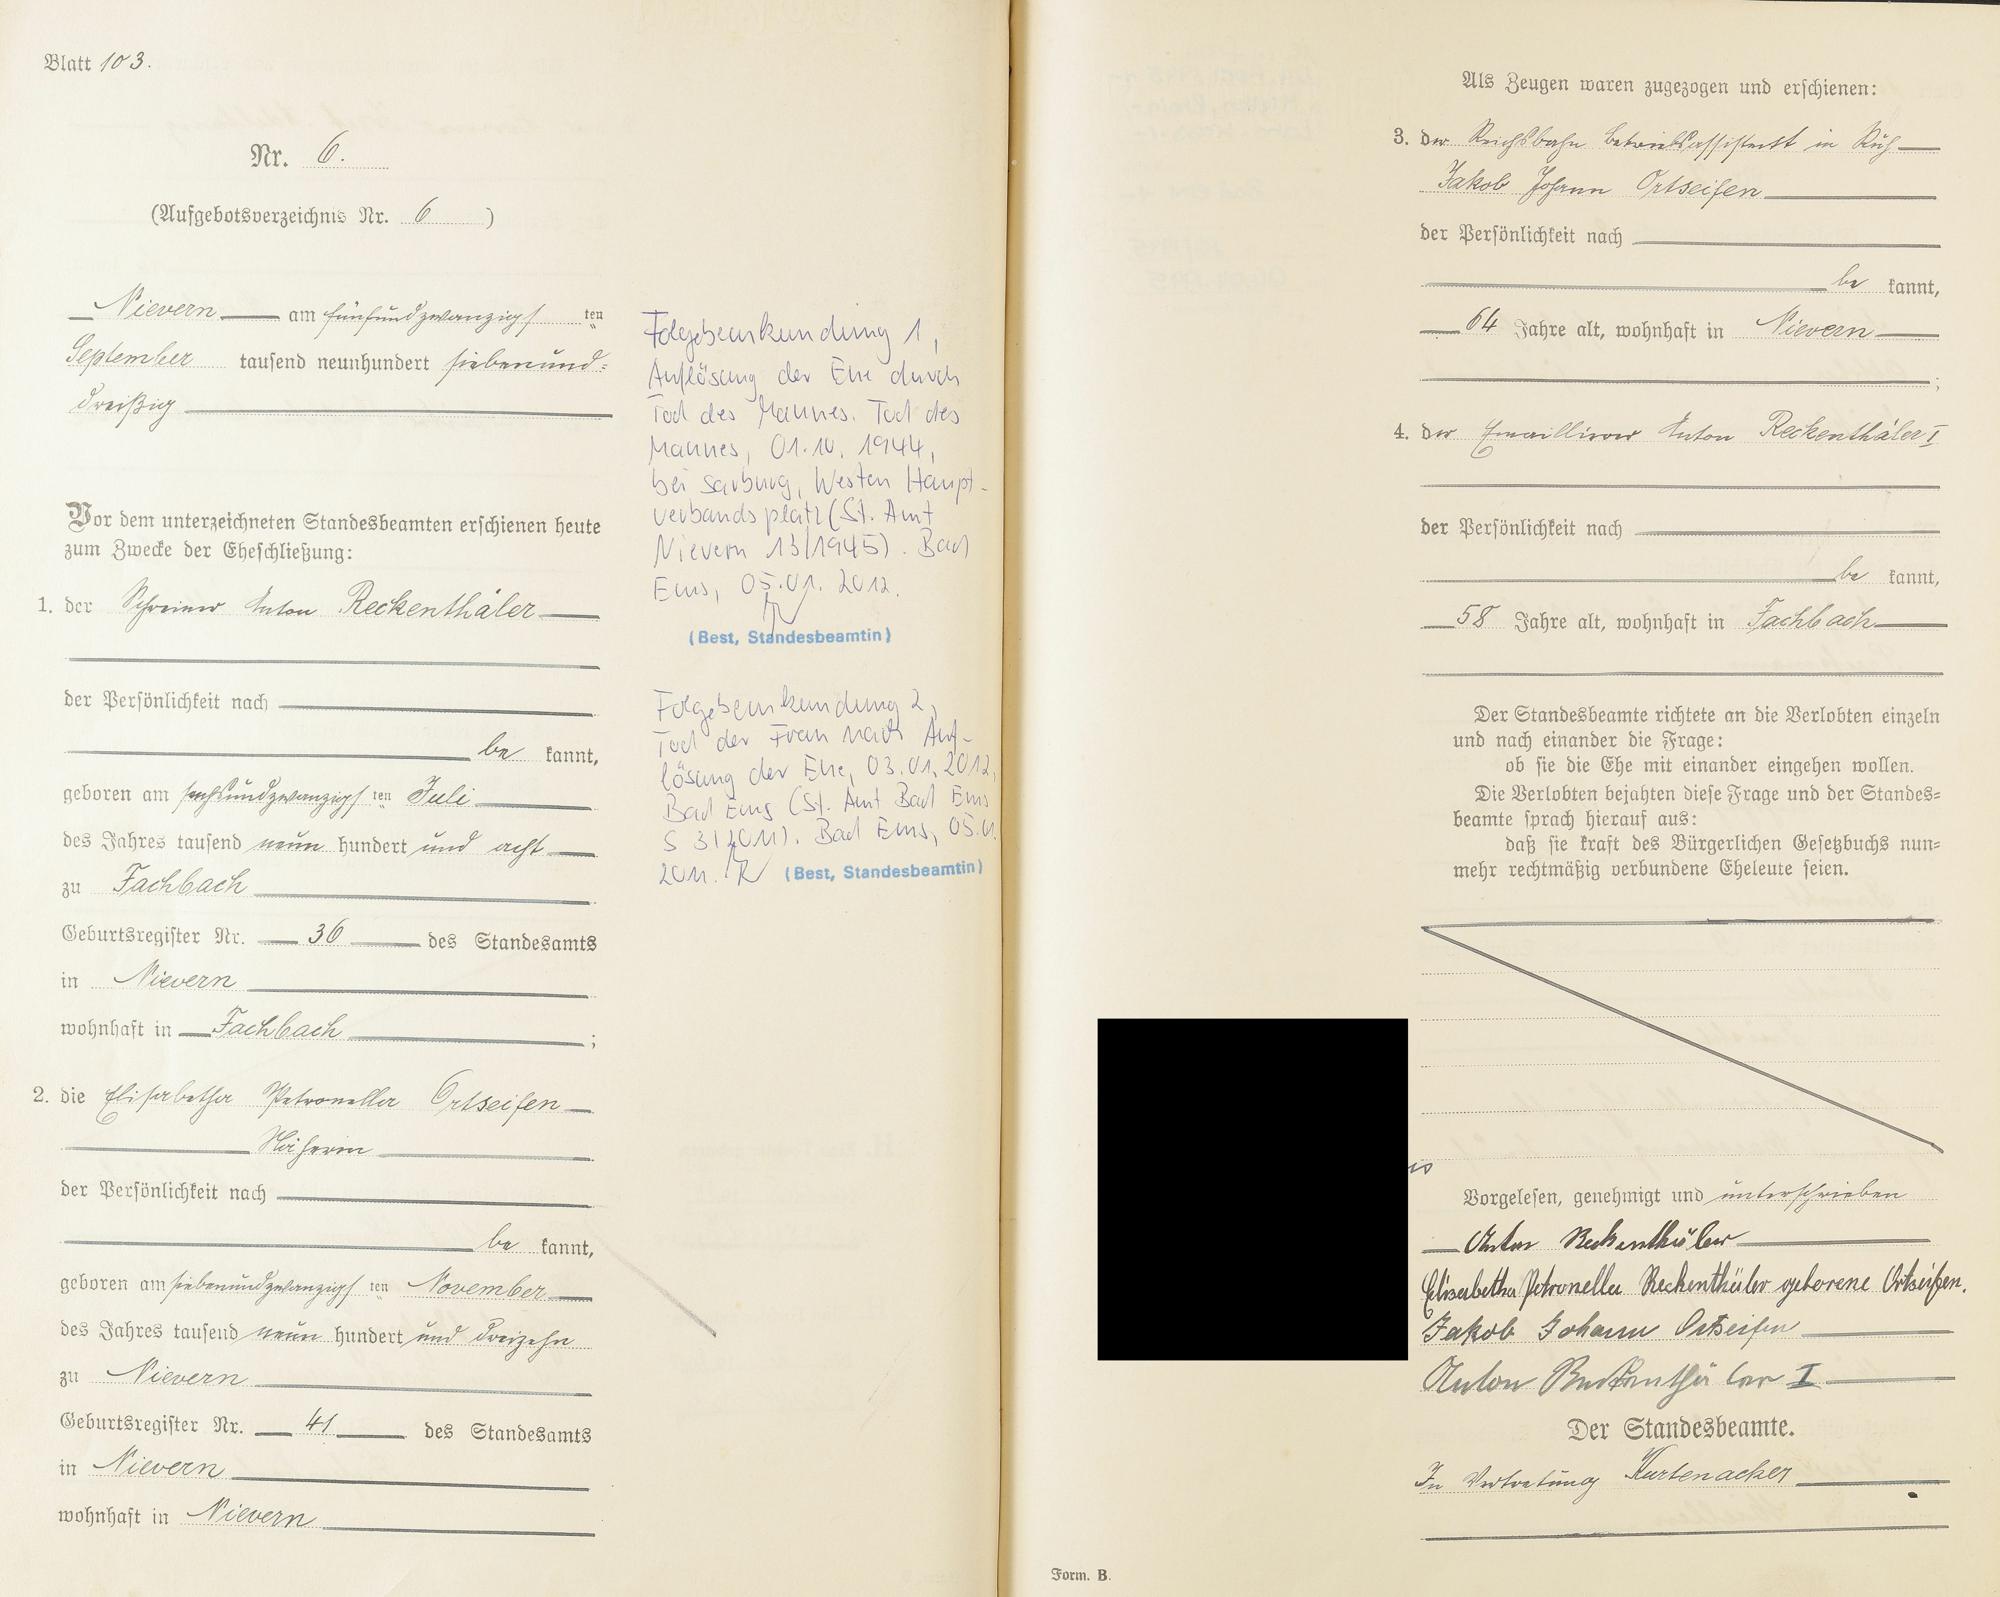 Blatt 103.
Nr. 6.
(Aufgebotsverzeichnis Nr. 6 )
Nievern am fünfundzwanzigs ten
September tausend neunhundert siebenund-
dreißig
Vor dem unterzeichneten Standesbeamten erschienen heute
zum Zwecke der Eheschließung:
1. der Schreiner Anton Reckenthäler
der Persönlichkeit nach
be kannt,
geboren am sechsundzwanzigs ten Juli
des Jahres tausend neun hundert und acht
zu Fachbach
Geburtsregister Nr. 36 des Standesamts
in Nievern
wohnhaft in Fachbach ;
2. die Elisabetha Petronella Ortseifen
Näherin
der Persönlichkeit nach
be kannt,
geboren am siebenundzwanzigs ten November
des Jahres tausend neun hundert und dreizehn
zu Nievern
Geburtsregister Nr. 41 des Standesamts
in Nievern
wohnhaft in Nievern
Folgebeurkundung 1,
Auflösung der Ehe durch
Tod des Mannes. Tod des
Mannes, 01.10.1944,
bei Sarburg, Westen Haupt-
verbandsplatz (St. Amt
Nievern 13/1945). Bad
Ems, 05.01.2012.
(Best, Standesbeamtin)
Folgebeurkundung 2,
Tod der Frau nach Auf-
lösung der Ehe, 03.01.2012,
Bad Ems (St. Amt Bad Ems
S 3/2011). Bad Ems, 05.01.
2011.
(Best, Standesbeamtin)
Als Zeugen waren zugezogen und erschienen:
3. der Reichsbahn Betriebsassistent in Ruh
Jakob Johann Ortseifen
der Persönlichkeit nach
be kannt,
64 Jahre alt, wohnhaft in Nievern
;
4. der Emaillierer Anton Reckenthäler I
der Persönlichkeit nach
be kannt,
58 Jahre alt, wohnhaft in Fachbach
Der Standesbeamte richtete an die Verlobten einzeln
und nach einander die Frage:
ob sie die Ehe mit einander eingehen wollen.
Die Verlobten bejahten diese Frage und der Standes-
beamte sprach hierauf aus:
daß sie kraft des Bürgerlichen Gesetzbuchs nun-
mehr rechtmäßig verbundene Eheleute seien.
Vorgelesen, genehmigt und unterschrieben
Anton Reckenthäler
Elisabetha Petronella Reckenthäler geborene Ortseifen.
Jakob Johann Ortseifen
Anton Reckenthäler I
Der Standesbeamte.
In Vertretung Kurtenacker
Form. B.